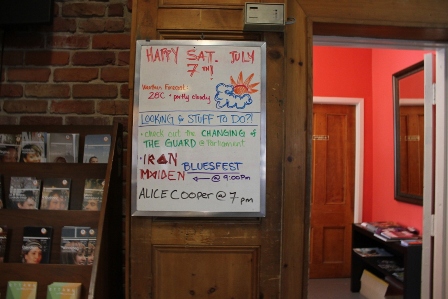 HAPPY SAT. JULY
7TH!
Weather Forecast:
28C • partly cloudy
LOOKING 4 STUFF TO DO?!
• check out the CHANGING of
THE GUARD @ Parliament
• IRON
MAIDEN BLUESFEST
@ 9:00pm
ALICE COOPER @ 7pm